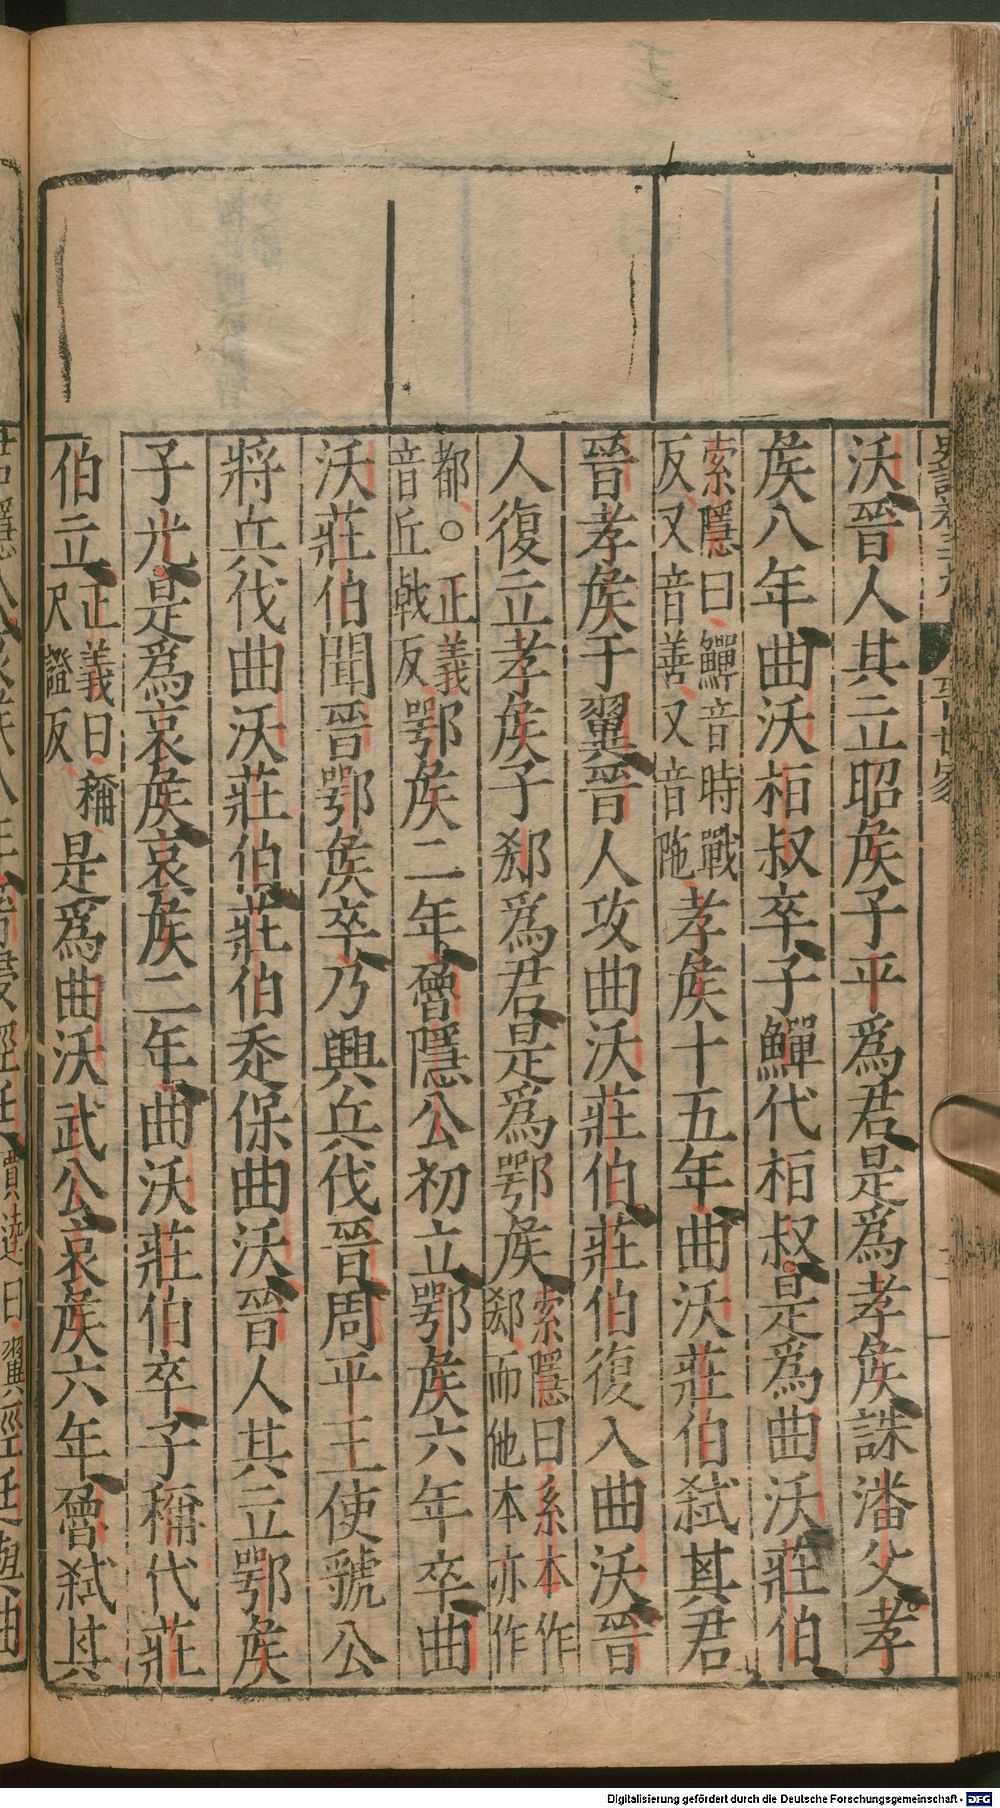 沃晉人共立昭矦子平爲君是爲孝矦誅潘父孝
矦八年曲沃桓叔卒子鱓代桓叔是爲曲沃莊伯
索隱曰鱓音時戰
反又音善又音陁
孝矦十五年曲沃莊伯弑其君
晉孝矦于翼晉人攻曲沃莊伯莊伯復入曲沃晉
人復立孝矦子郄爲君是爲鄂矦
索隱曰系本作
郄而他本亦作
都○正義
音丘戟反
鄂矦二年魯隱公初立鄂矦六年卒曲
沃莊伯聞晉鄂矦卒乃興兵伐晉周平王使虢公
將兵伐曲沃莊伯莊伯走保曲沃晉人共立鄂矦
子光是爲哀矦哀矦二年曲沃莊伯卒子稱代莊
伯立
正義曰稱
尺證反
是爲曲沃武公哀矦六年魯弑其
晉世家
賈逵曰翼
Digitalisierung gefördert durch die Deutsche Forschungsgemeinschaft - DFG